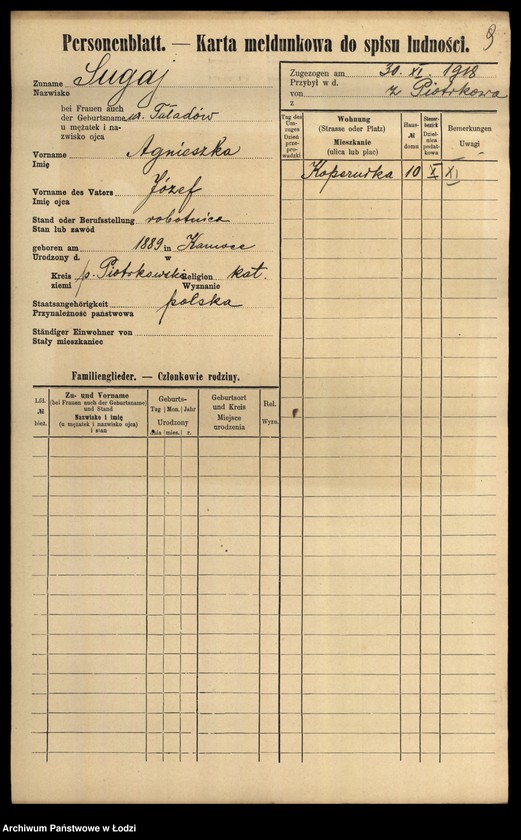 9
Personenblatt. — Karta meldunkowa do spisu ludności.
Zuname Sugaj
Nazwisko
bei Frauen auch
der Geburtsname ur. Taładów
u mężatek i na-
zwisko ojca
Vorname Agnieszka
Imię
Vorname des Vaters Józef
Imię ojca
Stand oder Berufsstellung robotnica
Stan lub zawód
geboren am 1889 in Kamocc
Urodzony d. w
Kreis p. Piotrkowski Religion kat.
ziemi Wyznanie
Staatsangehörigkeit polska
Przynależność państwowa
Ständiger Einwohner von
Stały mieszkaniec
Zugezogen am 30. XI. 1918
Przybył w d.
von z Piotrkowa
z
Tag des Um-zuges
Dzień prze-prowadzki
Wohnung
(Strasse oder Platz)
Mieszkanie
(ulica lub plac)
Haus-
№
domu
Steuer-
bezirk
Dziel-
nica
podat-
kowa
Bemerkungen
Uwagi
10 X XI
Familienglieder. — Członkowie rodziny.
Lfd.
№
bież.
Zu- und Vorname
(bei Frauen auch der Geburtsname)
und Stand
Nazwisko i imię
(u mężatek i nazwisko ojca)
i stan
Geburts-
Tag Mon. Jahr
Urodzony
dnia mies. r.
Geburtsort
und Kreis
Miejsce
urodzenia
Rel.
Wyzn.
Archiwum Państwowe w Łodzi